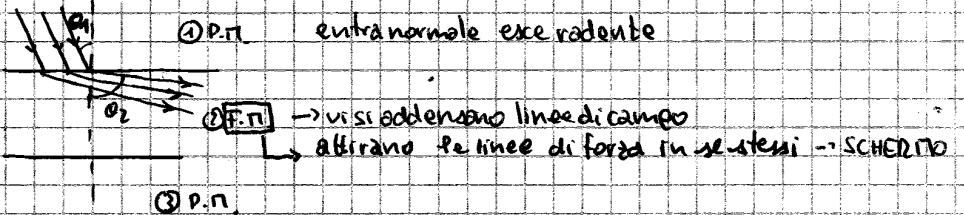 θ1 ① P.M. entra normale esce radente
θ2 ② F.M → vi si addensano linee di campo
→ attirano le linee di forza in se stessi → SCHERMO
③ P.M.